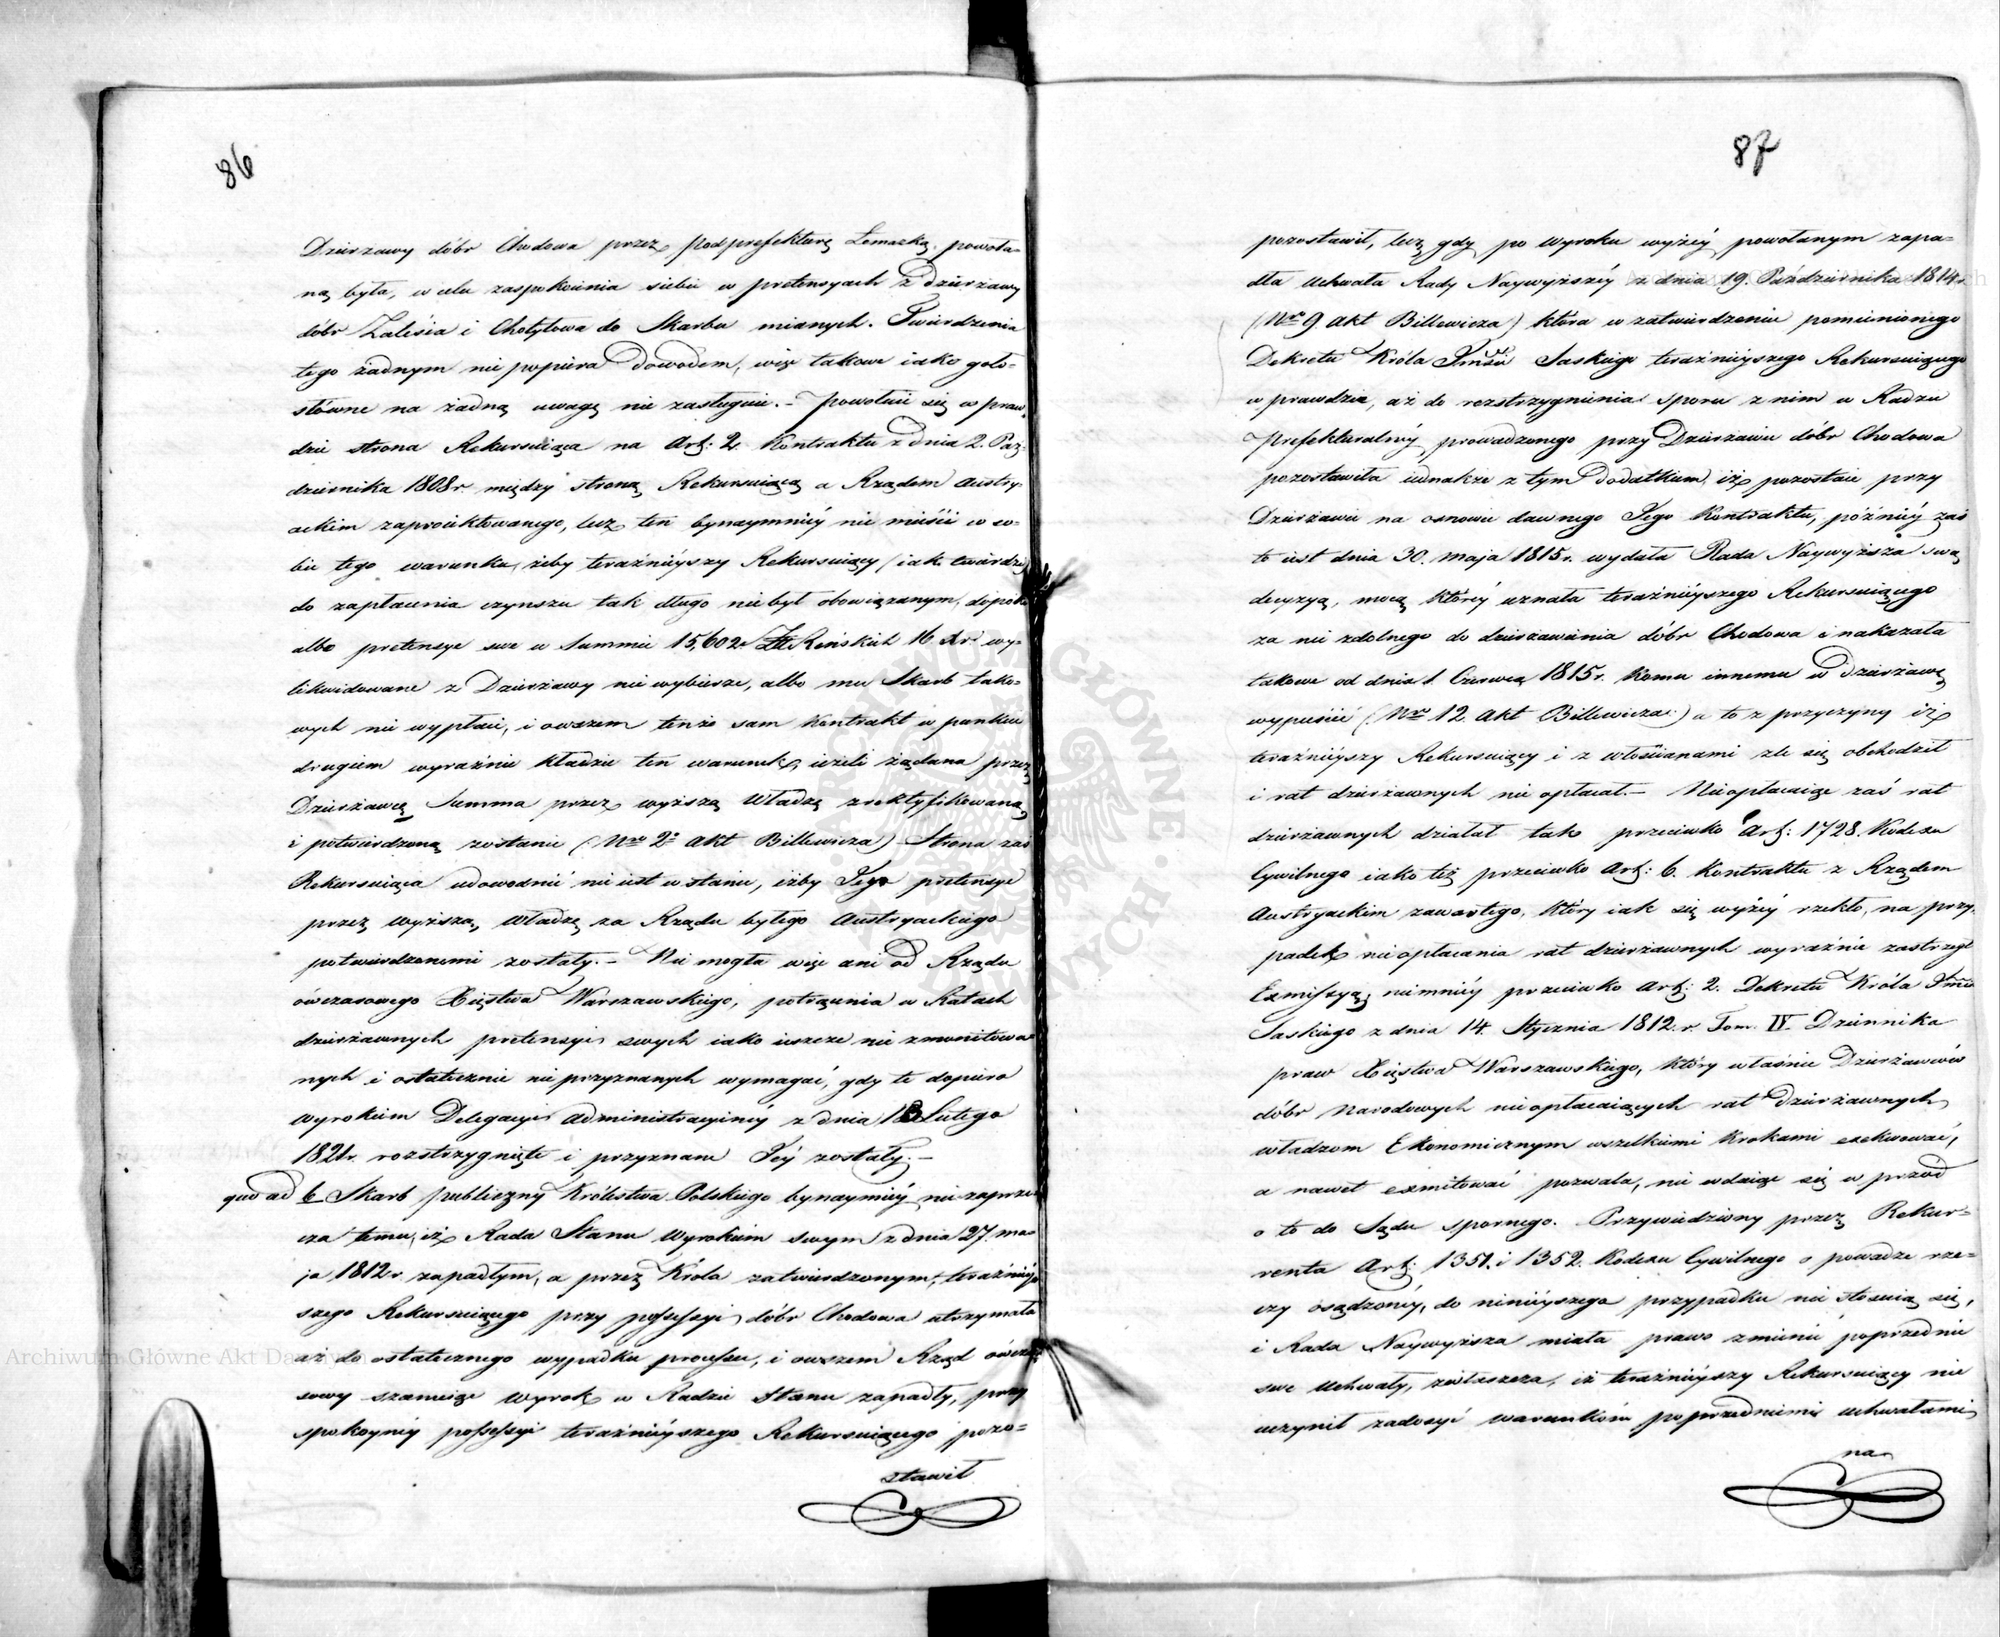 86
Dzierzawy dóbr Chodowa przez Podprefekturę Łomazką powoła-
ną była, w celu zaspokoienia siebie w pretensyach z dzierzawy
dóbr Zalesia i Chotyłowa do Skarbu mianych. Twierdzenia
tego żadnym nie popiera dowodem, więc takowe iako goło-
słowne na żadną uwagę nie zasługuie. – Powołuie się w praw-
dzie strona Rekursuiąca na Art: 2. Kontraktu z dnia 2. Paź-
dziernika 1808 r. między stroną Rekursuiącą a Rządem Austry-
ackim zaproiektowanego, lecz ten bynaymniéy nie mieści w so-
bie tego warunku, żeby teraźnieyszy Rekursuiący (iak twierdzi)
do zapłacenia czynszu tak długo nie był obowiązanym, dopoki
albo pretensye swe w Summie 15,602 Zł Reńskich 16 Xr. wy-
likwidowane z Dzierżawy nie wybierze, albo mu Skarb tako-
wych nie wypłaci, i owszem tenże sam Kontrakt w punkcie
drugiem wyraźnie kładzie ten warunek, ieżeli żądana przez
Dzierżawcę Summa przez wyższą Władzę zrektyfikowaną
i potwierdzoną zostanie (Nro 2o akt Billewicza) Strona zaś
Rekursuiąca udowodnić nie iest w stanie, iżby Jego pretensye
przez wyższą Władzę za Rządu byłego Austryackiego
potwierdzonemi zostały. – Nie mogła więc ani od Rządu
ówczasowego Xięstwa Warszawskiego, potrącenia w Ratach
dzierżawnych pretensyi swych iako ieszcze nie zmonitowa-
nych i ostatecznie nieprzyznanych wymagać, gdy te dopiero
wyrokiem Delegacyi Administracyinéy z dnia 13 Lutego
1821 r. rozstrzygnięte i przyznane Jéy zostały. –
quo ad 6. Skarb publiczny Królestwa Polskiego bynaymiéy nie zaprze-
cza temu, iż Rada Stanu Wyrokiem swym z dnia 27. ma-
ja 1812 r. zapadłym, a przez Króla zatwierdzonym, teraźniéy-
szego Rekursuiącego przy possessyi dóbr Chodowa utrzymała
aż do ostatecznego wypadku processu, i owszem Rząd ówcza-
sowy szanuiąc wyrok w Radzie Stanu zapadły, przy
spokoynéy possessyi teraźniéyszego Rekursuiącego pozo-
stawił
87
pozostawił, lecz gdy po wyroku wyżéy powołanym zapa-
dła uchwała Rady Naywyższéy z dnia 19. Października 1814 r.
(Nro 9. akt Billewicza) która w zatwierdzeniu pomienionego
Dekretu Króla Jmści Saskiego teraźniéyszego Rekursuiącego
w prawdzie, aż do rozstrzygnienia sporu z nim w Radzie
Prefekturalnéy prowadzonego przy Dzierżawie dóbr Chodowa
pozostawiła iednakże z tym dodatkiem, iż pozostaie przy
Dzierżawie na osnowie dawnego Jego Kontraktu, późniéy zaś
to iest dnia 30. Maja 1815 r. wydała Rada Naywyższa swą
decyzyą, mocą któréy uznała teraźniéyszego Rekursuiącego
za nie zdolnego do dzierżawienia dóbr Chodowa i nakazała
takowe od dnia 1. Czerwca 1815 r. Komu innemu w dzierżawę
wypuścić (Nro 12. akt Billewicza) a to z przyczyny iż
teraźniéyszy Rekursuiący i z włościanami źle się obchodził
i rat dzierżawnych nie opłacał. – Nieopłacaiąc zaś rat
dzierżawnych działał tak przeciwko Art: 1728. Kodexu
Cywilnego iako też przeciwko Art: 6. Kontraktu z Rządem
Austryackim zawartego, który iak się wyżéy rzekło, na przy-
padek nieopłacania rat dzierżawnych wyraźnie zastrzegł
Exmissyą; niemniéy przeciwko Art: 2. Dekretu Króla Jmci
Saskiego z dnia 14. Stycznia 1812. r. Tom. IV Dziennika
praw Xięstwa Warszawskiego, który właśnie Dzierżawców
dóbr Narodowych nieopłacaiących rat dzierżawnych,
władzom Ekonomicznym wszelkiemi Krokami exekwować,
a nawet exmitować pozwala, nie wdaiąc się w przód
o to do Sądu spornego. Przywiedziony przez Rekur-
renta Art: 1351. i 1352. Kodexu Cywilnego o powadze rze-
czy osądzonéy, do niniéyszego przypadku nie stosuią się,
i Rada Naywyższa miała prawo zmienić poprzednie
swe uchwały, zwłaszcza, iż teraźniéyszy Rekursuiący nie
uczynił zadosyć warunkóm poprzedniemi uchwałami
na
Archiwum Główne Akt Dawnych